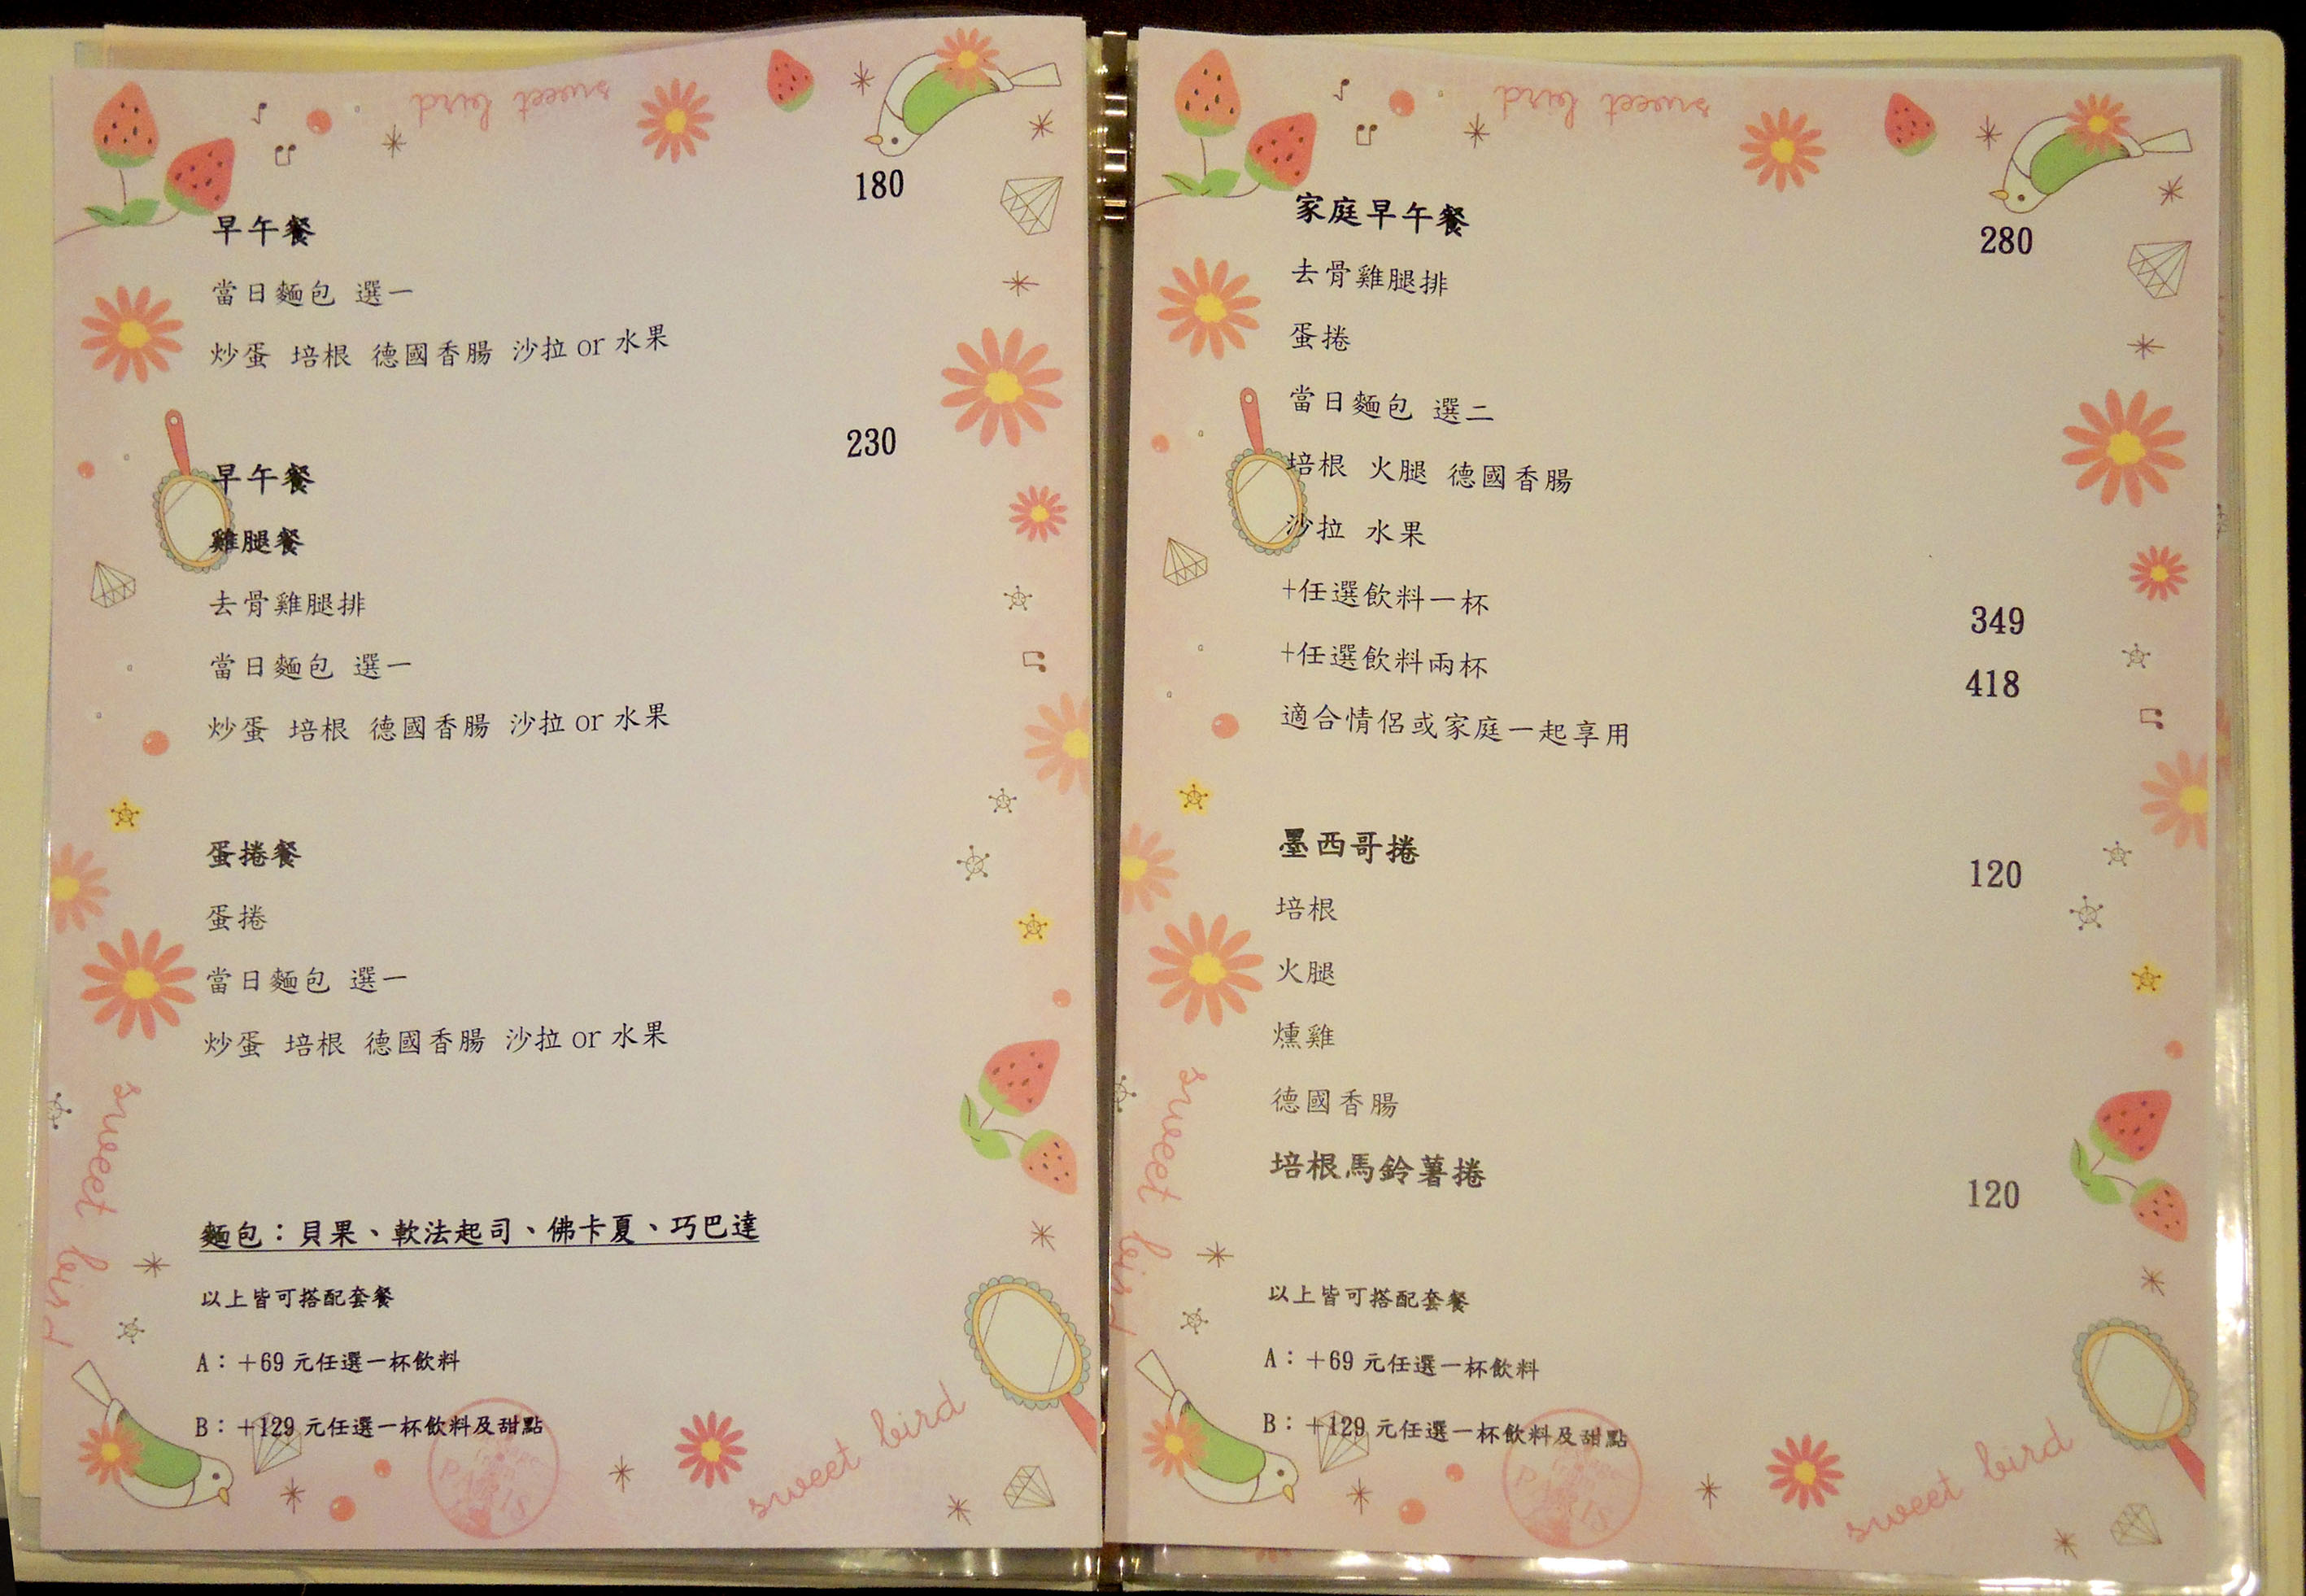 sweet bird
180
早午餐
當日麵包 選一
炒蛋 培根 德國香腸 沙拉 or 水果
230
早午餐
雞腿餐
去骨雞腿排
當日麵包 選一
炒蛋 培根 德國香腸 沙拉 or 水果
蛋捲餐
蛋捲
當日麵包 選一
炒蛋 培根 德國香腸 沙拉 or 水果
麵包：貝果、軟法起司、佛卡夏、巧巴達
以上皆可搭配套餐
A：+69 元任選一杯飲料
B：+129 元任選一杯飲料及甜點
sweet bird
PARIS
sweet bird
sweet bird
家庭早午餐
280
去骨雞腿排
蛋捲
當日麵包 選二
培根 火腿 德國香腸
沙拉 水果
+任選飲料一杯 349
+任選飲料兩杯 418
適合情侶或家庭一起享用
墨西哥捲
120
培根
火腿
燻雞
德國香腸
培根馬鈴薯捲
120
以上皆可搭配套餐
A：+69 元任選一杯飲料
B：+129 元任選一杯飲料及甜點
sweet bird
PARIS
sweet bird